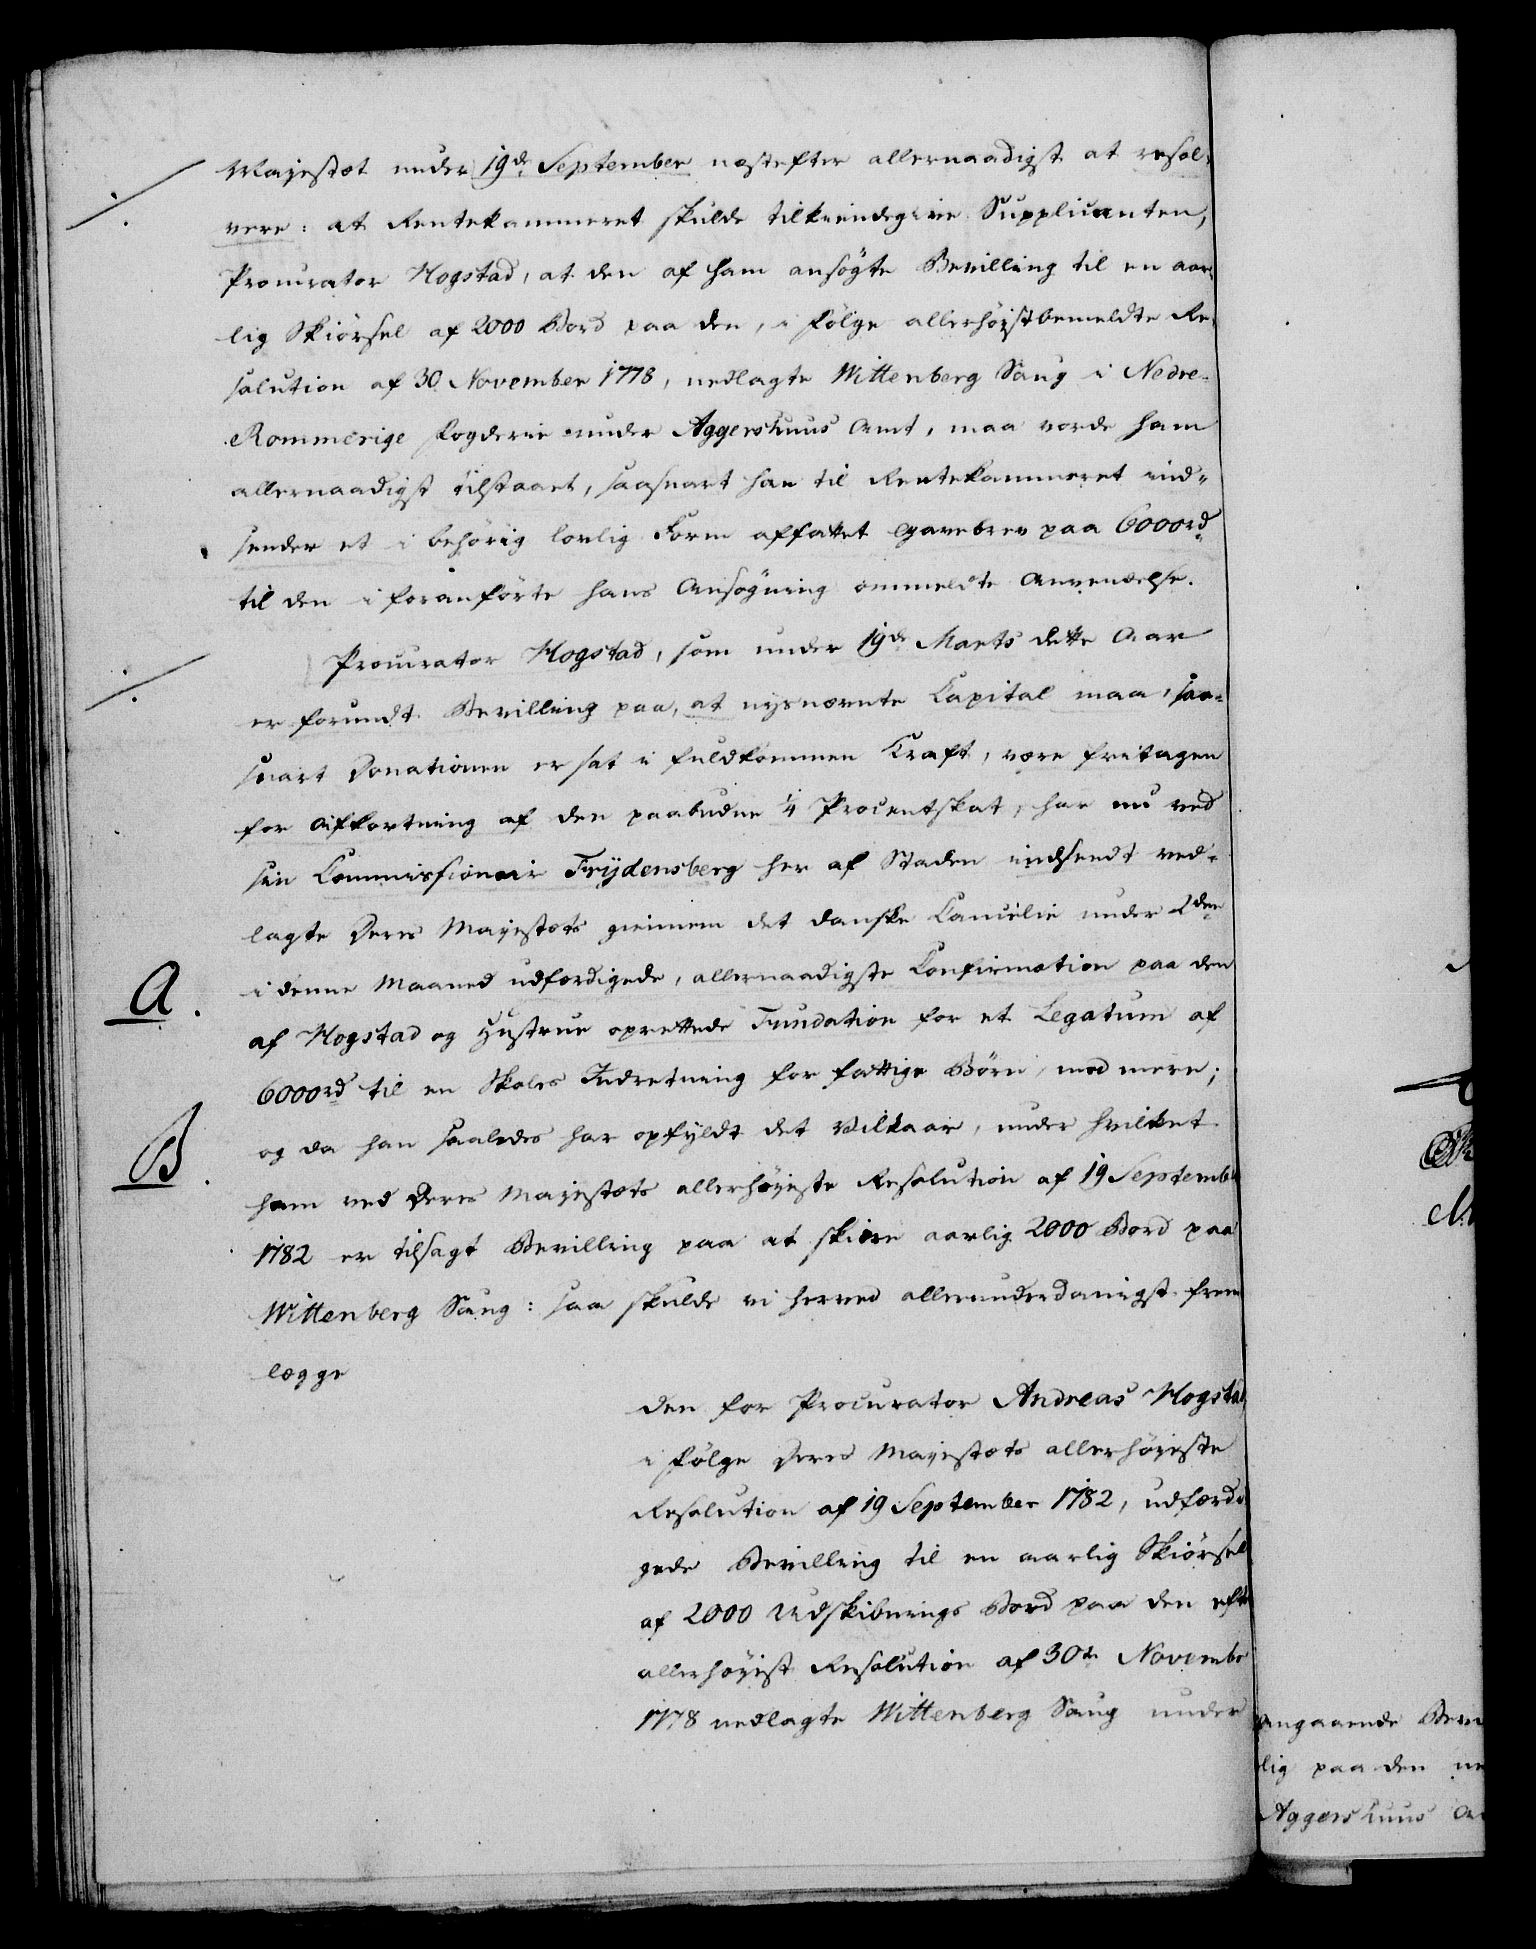 Majestæt under 19de September næstefter allernaadigst at resol-
vere: at Rentekammeret skulde tilkiendegive Supplicanten,
Procurator Mogstad, at den af ham ansögte Bevilling til en aar-
lig Skiörsel af 2000 Bord paa den, i fölge allerhöistbemeldte Re-
solution af 30 November 1778, nedlagte Wittenberg Saug i Nedre-
Rommerige Fogderie under Aggershuus Amt, maa vorde ham
allernaadigst tilstaaet, saasnart han til Rentekammeret ind-
sender et i behörig lovlig Form affattet Gavebrev paa 6000rd
til den i foranförte hans Ansögning ommeldte Anvendelse.
Procurator Mogstad, som under 19de Marts dette Aar
er forundt Bevilling paa, at nysnævnte Capital maa, saa-
snart Donationen er sat i fuldkommen Kraft, være fritagen
for Afkortning af den paabudne 1/4 Procentskat, har nu ved
sin Commissionair Frÿdensberg her af Staden indsendt ved-
lagte Deres Majestæts giennem det danske Cancelie under 2den
i denne Maaned udfærdigede, allernaadigste Confirmation paa den
A.
af Mogstad og Hustrue oprettede Fundation for et Legatum af
6000rd til en Skoles Indretning for fattige Börn, med mere;
og da han saaledes har opfyldt det Vilkaar, under hvilket
B.
ham ved Deres Majestæts allerhöyeste Resolution af 19 September
1782 er tilsagt Bevilling paa at skiære aarlig 2000 Bord paa
Wittenberg Saug: saa skulde vi herved allerunderdanigst frem
lægge
den for Procurator Andreas Mogstad
i fölge Deres Majestæts allerhöyeste
Resolution af 19 September 1782, udfærdi
gede Bevilling til en aarlig Skiörsel
af 2000 Udskibnings Bord paa den efter
allerhöyist Resolution af 30te November
1778 nedlagte Wittenberg Saug under
angaaende Bevi
lig paa den ne
Aggershuus Am